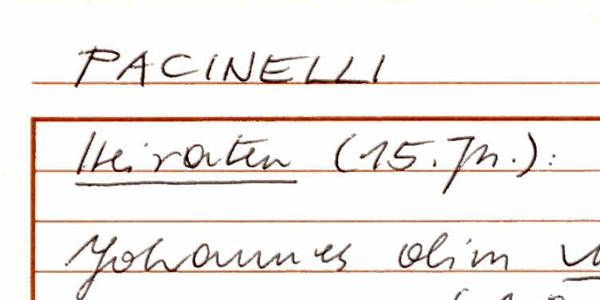 PACINELLI
Heiraten (15. Jh.):
Johannes olim